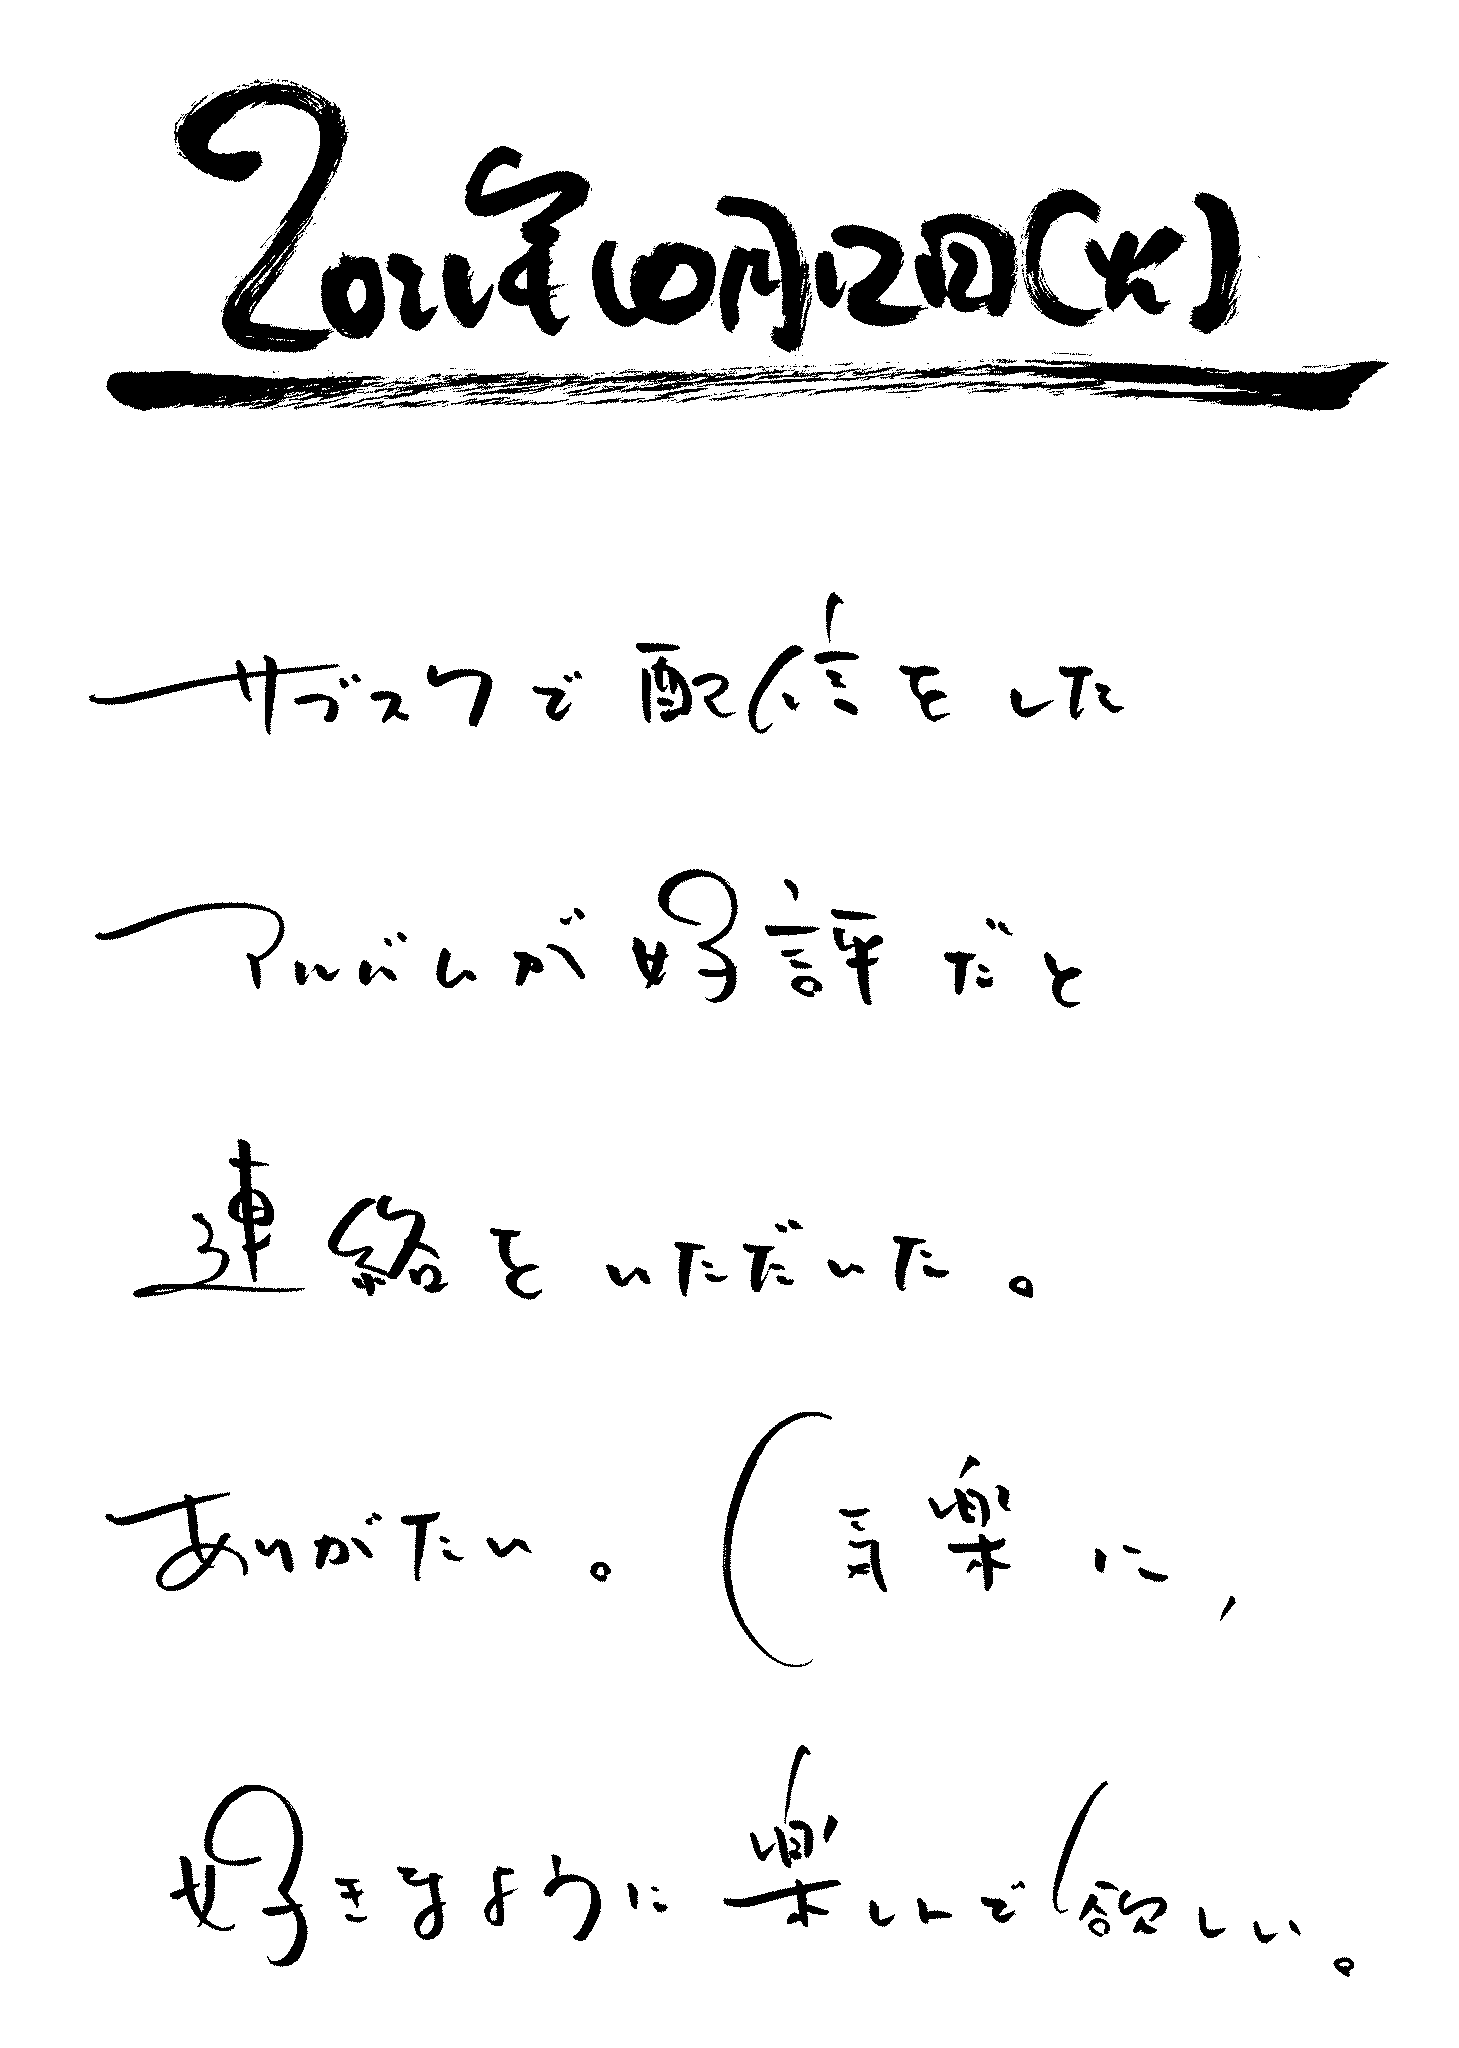 2021年10月12日(火)
サブスクで配信をした
アルバムが好評だと
連絡をいただいた。
ありがたい。(気楽に,
好きなように楽しんで欲しい。